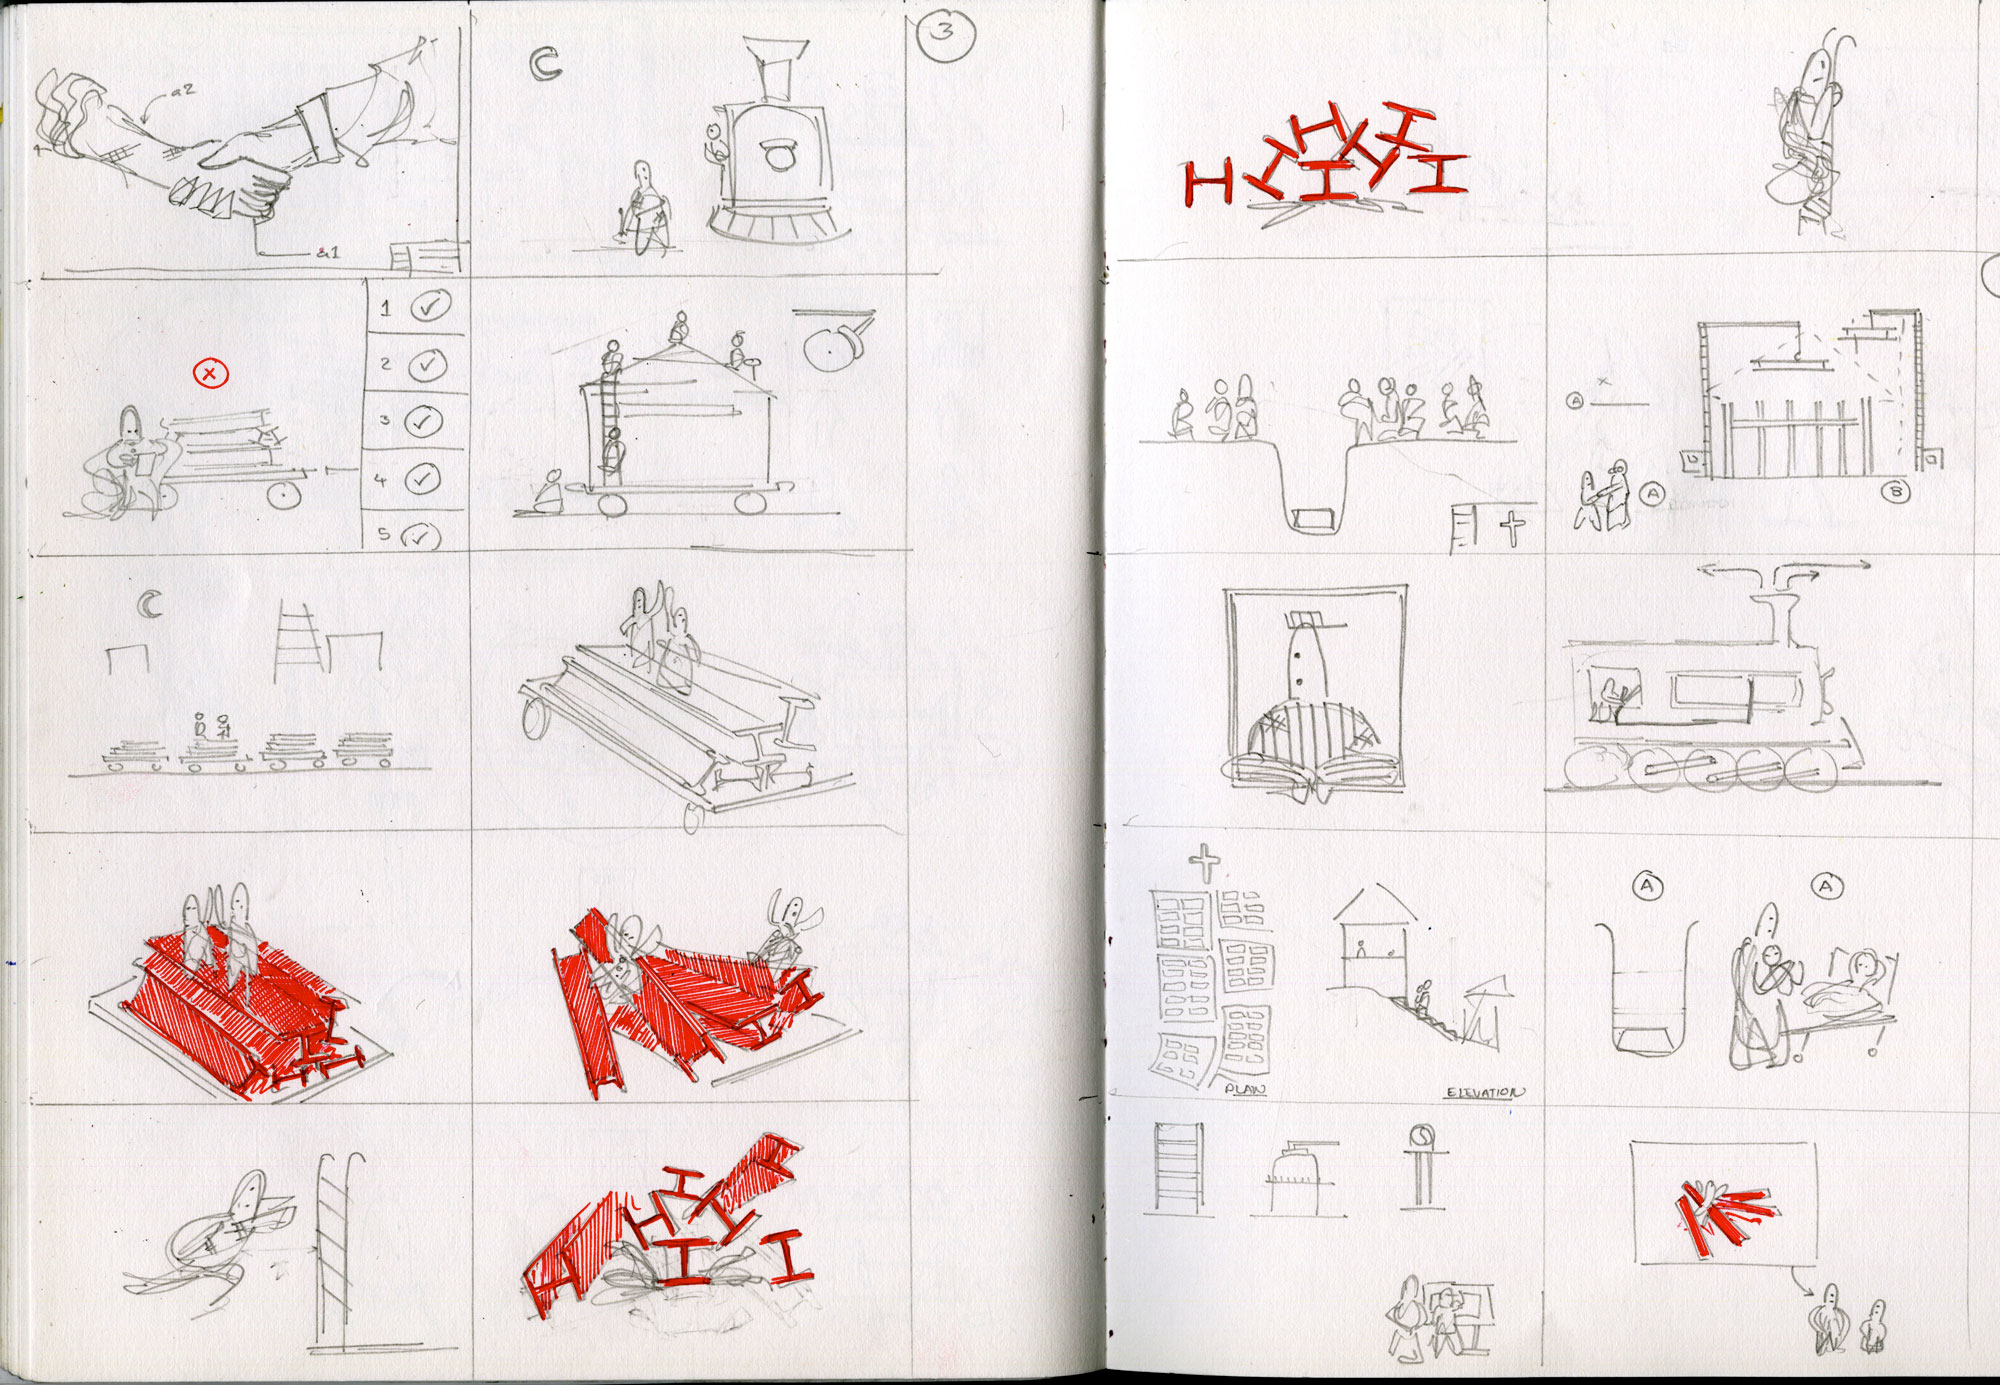 3
a2
a1
C
x
1
2
3
4
5
C
A
x
A
B
PLAN
ELEVATION
A
A